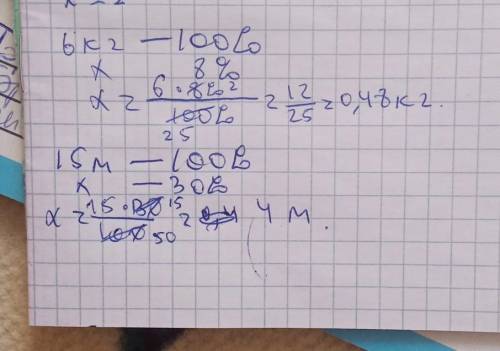 6 кг — 100%
x 8%
x = 6 · 8% 2 / 100% 25 = 12/25 = 0,48 кг.
15 м — 100%
x — 30%
x = 15 · 30 15 / 100 50 = 4 м.